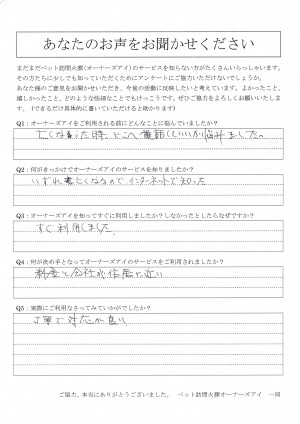 あなたのお声をお聞かせください
まだまだペット訪問火葬(オーナーズアイ)のサービスを知らない方がたくさんいらっしゃいます。
その方たちに少しでも知っていただくためにアンケートにご協力いただけないでしょうか。
あなた様のご意見をお聞かせいただき、今後の活動に反映したいと考えています。よかったこと、
嬉しかったこと、どのような些細なことでもけっこうです。ぜひご協力をよろしくお願いいたしま
す。(できるだけ具体的に書いていただけると助かります)
Q1:オーナーズアイをご利用される前にどんなことに悩んでいましたか?
亡くなった時、どこへ電話していいか悩みました。
Q2:何がきっかけでオーナーズアイのサービスを知りましたか?
いずれ亡くなるので インターネットで知った
Q3:オーナーズアイを知ってすぐに利用しましたか?しなかったとしたらなぜですか?
すぐ利用しました
Q4:何が決め手となってオーナーズアイのサービスをご利用されましたか?
料金と会社が住居に近い
Q5:実際にご利用なさってみていかがでしたか?
丁寧で対応が良い
ご協力、本当にありがとうございました。 ペット訪問火葬オーナーズアイ 一同